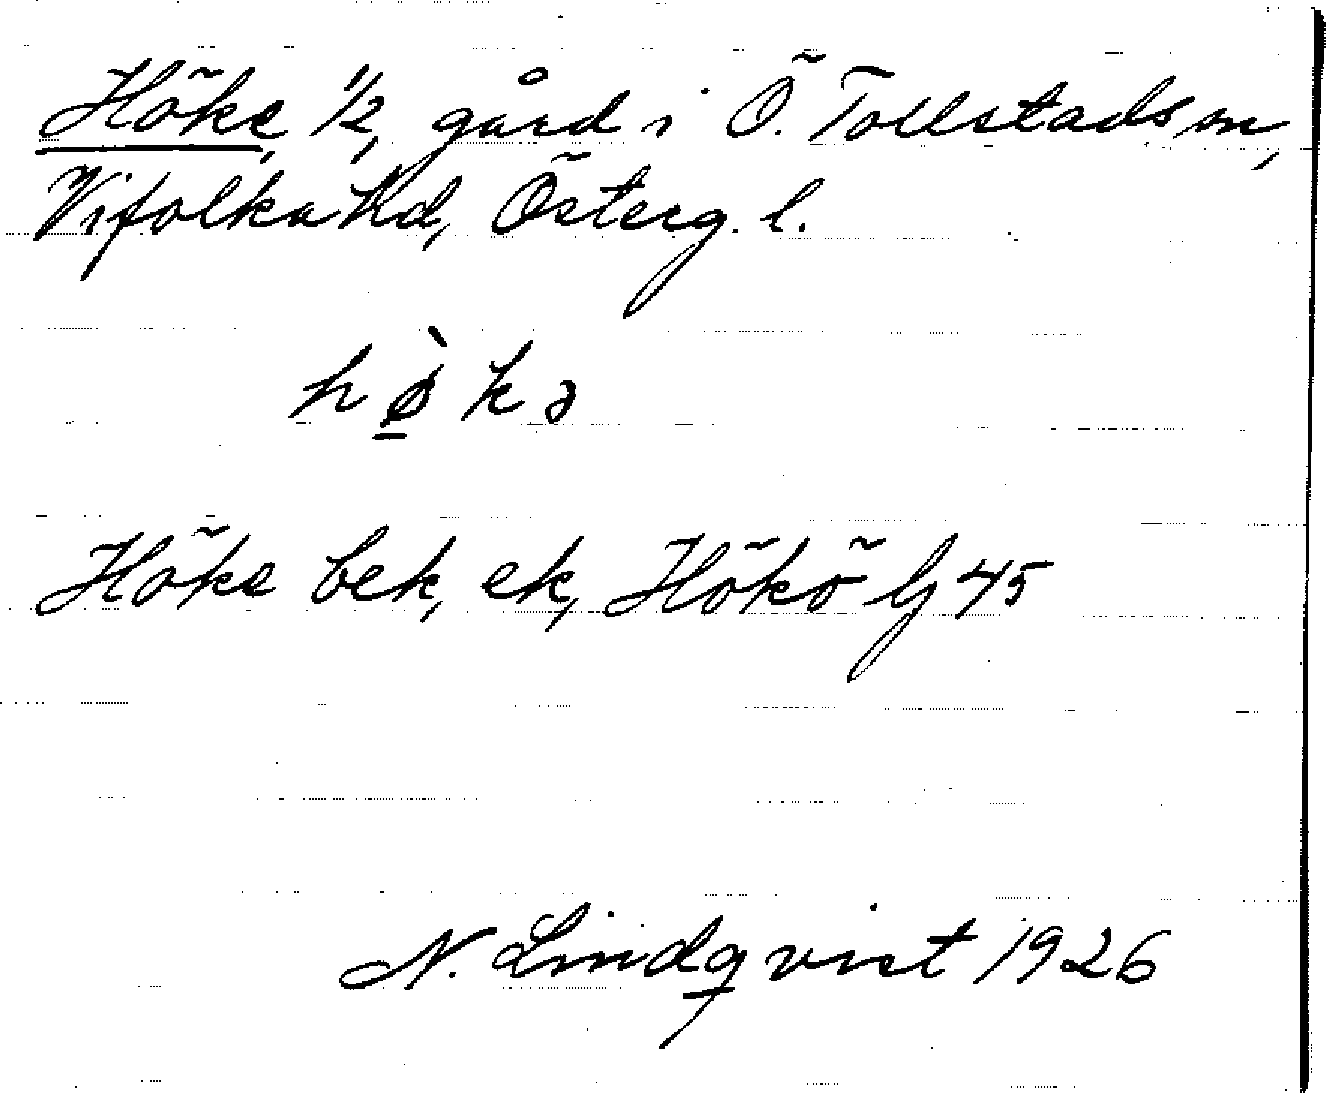 Höke, 1/2, gård i Ö. Tollstads sn,
Vifolka hd, Österg. l.
hø̀kə
Höke bek, ek, Hökö lj 45
N. Lindqvist 1926